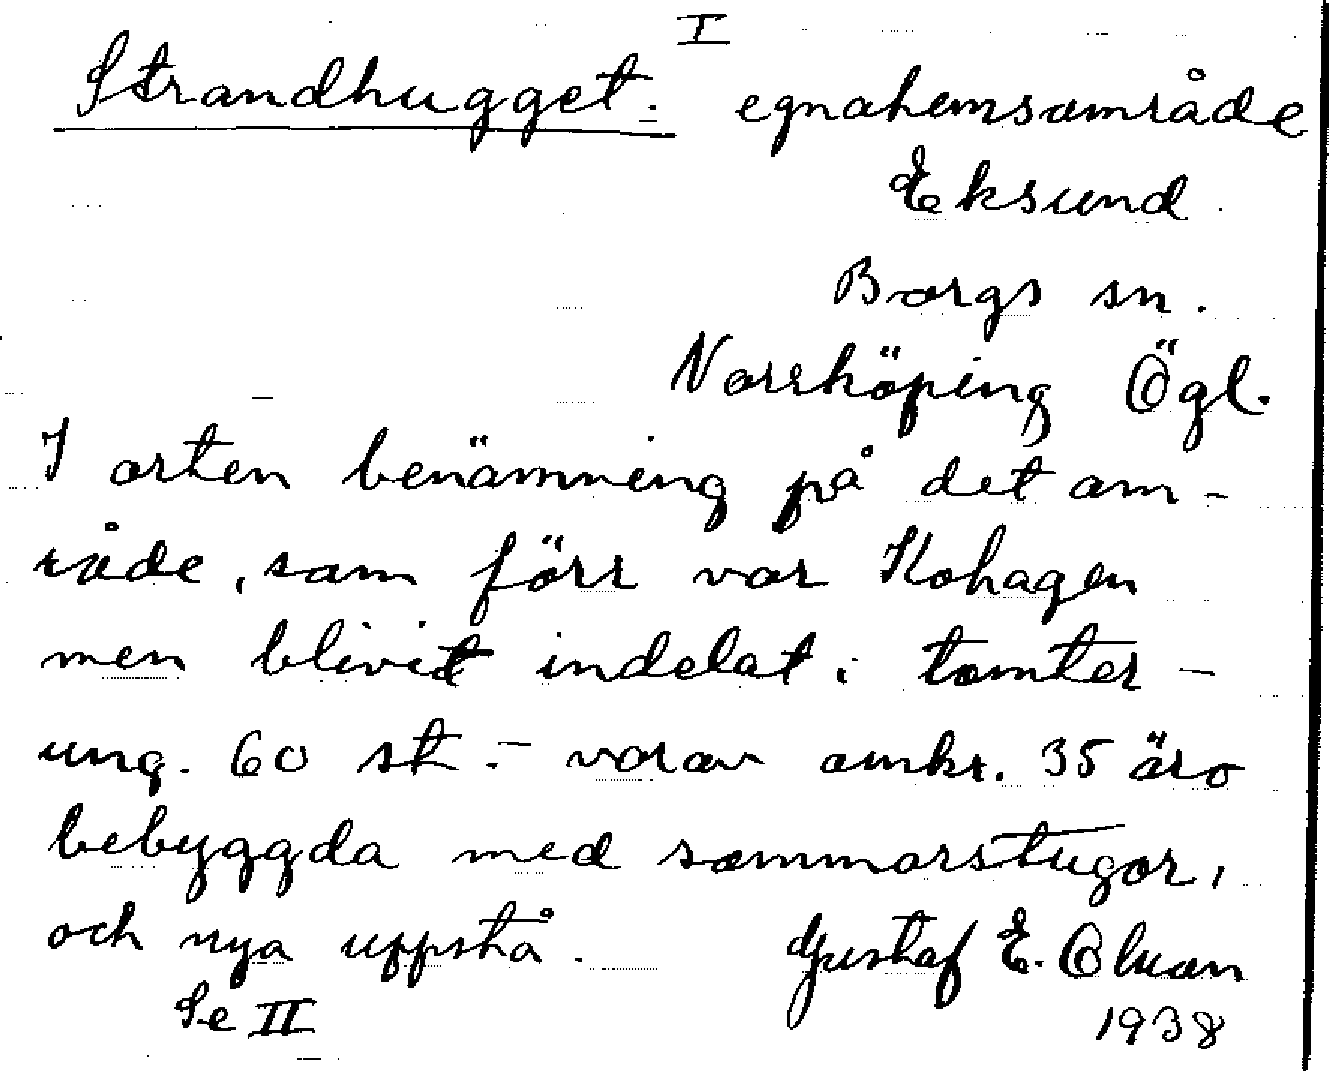 I
Strandhugget. egnahemsområde
Eksund.
Borgs sn.
Norrköping Ögl.
I orten benämning på det om-
råde, som förr var Kohagen
men blivit indelat i tomter -
ung. 60 st. - varav omkr. 35 äro
bebyggda med sommarstugor,
och nya uppstå. Gustaf E. Olson
Se II 1938